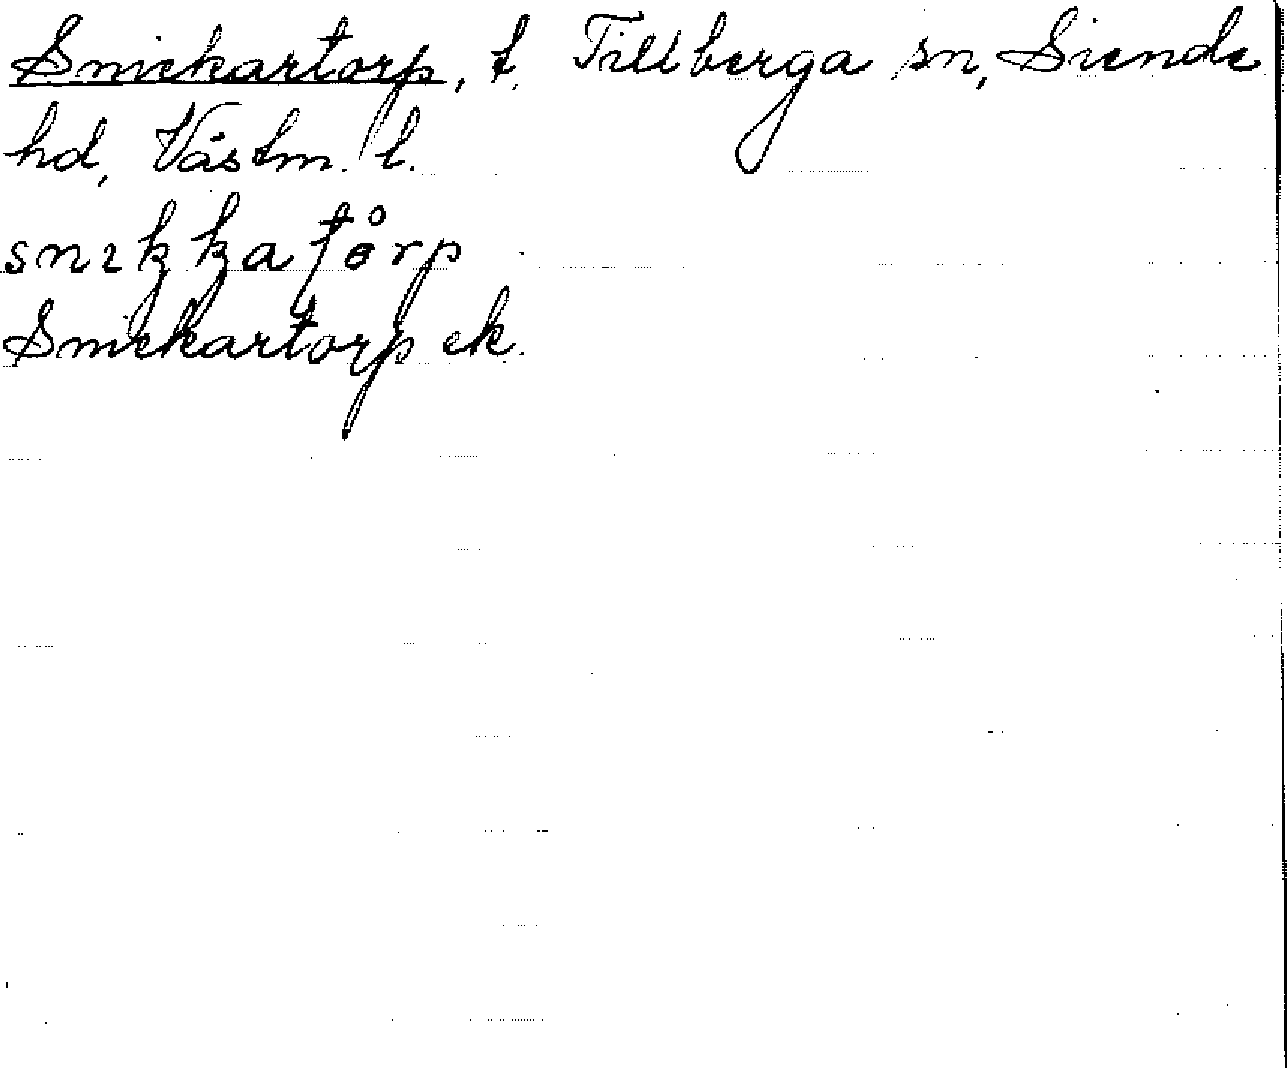 Snickartorp, t. Tillberga sn, Siende
hd, Västm. l.
snikkatårp
Snickartorp ek.